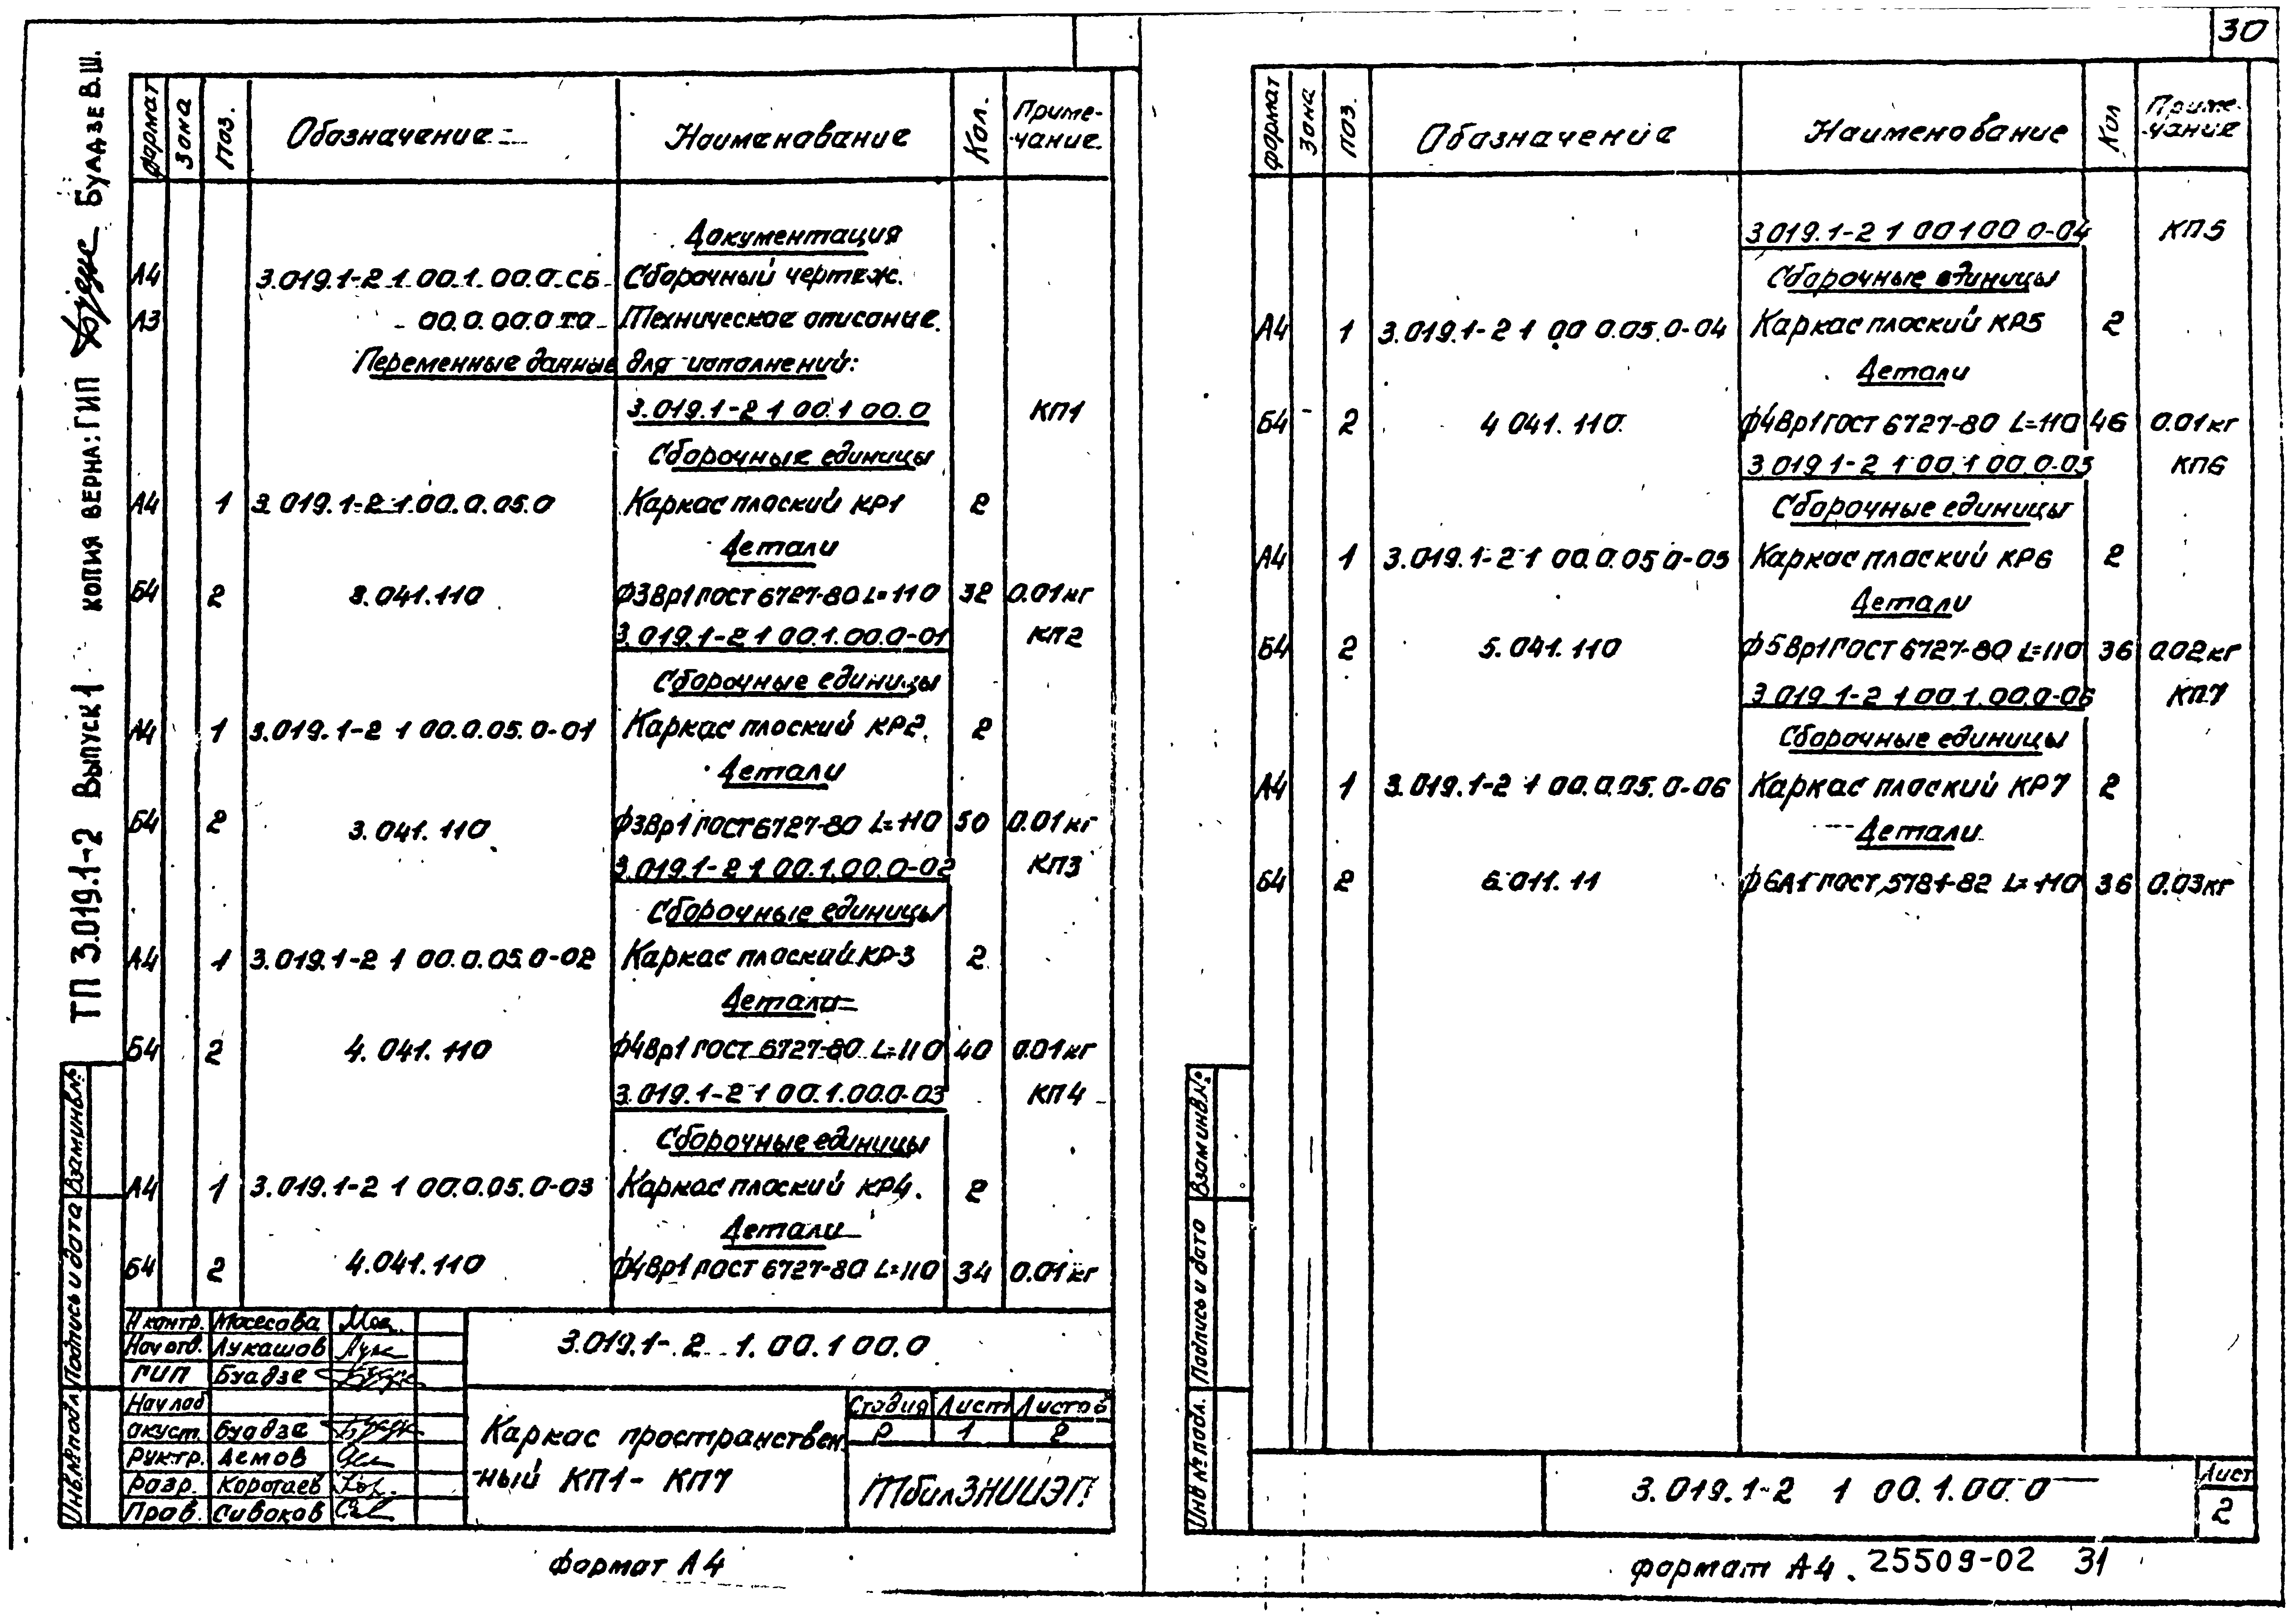 30
ТП 3.019.1-2 Выпуск 1 копия верна: ГИП Буадзе В.Ш.
Формат Зона Поз. Обозначение Наименование Кол. Приме-
-чание.
Документация
А4 3.019.1-2 1 00.1.00.0 СБ Сборочный чертеж.
А3 00.0.00.0 ТО Техническое описание.
Переменные данные для исполнений:
3.019.1-2 1 00.1 00.0 КП1
Сборочные единицы
А4 1 3.019.1-2 1.00.0.05.0 Каркас плоский КР1 2
Детали
Б4 2 3.041.110 Ф3Вр1 ГОСТ 6727-80 L=110 32 0.01кг
3.019.1-2 1 00.1.00.0-01 КП2
Сборочные единицы
А4 1 3.019.1-2 1 00.0.05.0-01 Каркас плоский КР2. 2
Детали
Б4 2 3.041.110 Ф3Вр1 ГОСТ 6727-80 L=110 50 0.01кг
3.019.1-2 1 00.1.00.0-02 КП3
Сборочные единицы
А4 1 3.019.1-2 1 00.0.05.0-02 Каркас плоский КР-3 2
Детали
Б4 2 4.041.110 Ф4Вр1 ГОСТ 6727-80 L=110 40 0.01кг
3.019.1-2 1 00.1.00.0-03 КП4
Сборочные единицы
А4 1 3.019.1-2 1 00.0.05.0-03 Каркас плоский КР4. 2
Детали
Б4 2 4.041.110 Ф4Вр1 ГОСТ 6727-80 L=110 34 0.01кг
Взам.инв.№
Подпись и дата
Инв.№подл.
Н контр. Мосесова
Нач отд. Лукашов
ГИП Буадзе
Нач лаб
акуст. Буадзе
Рук гр. Демов
Разр. Коротаев
Пров. Сивоков
3.019.1-2 1.00.1 00.0
Каркас пространствен-
-ный КП1- КП7
Стадия Лист Листов
Р 1 2
ТбилЗНИИЭП
Формат А4
Формат Зона Поз. Обозначение Наименование Кол Приме-
-чание
3.019.1-2 1 00 1 00 0-04 КП5
Сборочные единицы
А4 1 3.019.1-2 1 00 0.05.0-04 Каркас плоский КР5 2
Детали
Б4 2 4 041.110. Ф4Вр1 ГОСТ 6727-80 L=110 46 0.01кг
3.019 1-2 1 00.1 00.0-05 КП6
Сборочные единицы
А4 1 3.019.1-2 1 00.0.05 0-05 Каркас плоский КР6 2
Детали
Б4 2 5.041.110 Ф5Вр1 ГОСТ 6727-80 L=110 36 0.02кг
3.019.1-2 1 00.1.00.0-06 КП7
Сборочные единицы
А4 1 3.019.1-2 1 00.0.05.0-06 Каркас плоский КР7 2
Детали
Б4 2 6.011.11 Ф6А1 ГОСТ 5781-82 L=110 36 0.03кг
Взам инв.№
Подпись и дата
Инв № подл.
3.019.1-2 1 00.1.00.0
Лист
2
Формат А4. 25509-02 31